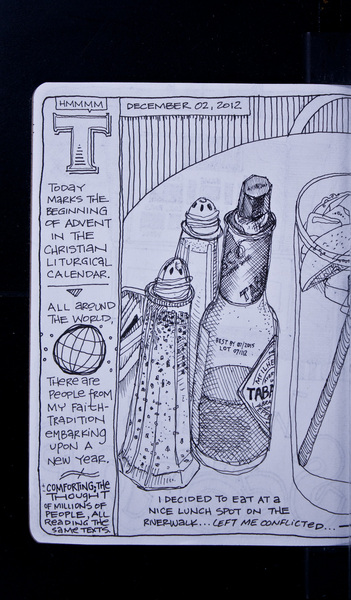 HMMMM
T
TODAY
MARKS THE
BEGINNING
OF ADVENT
IN THE
CHRISTIAN
LITURGICAL
CALENDAR.
ALL AROUND
THE WORLD,
THERE ARE
PEOPLE FROM
MY FAITH-
TRADITION
EMBARKING
UPON A
NEW YEAR.
COMFORTING, THE
THOUGHT
OF MILLIONS OF
PEOPLE, ALL
READING THE
SAME TEXTS.
DECEMBER 02, 2012
BEST BY 01/2015
LOT 07/12
TABA
I DECIDED TO EAT AT A
NICE LUNCH SPOT ON THE
RIVERWALK... LEFT ME CONFLICTED...